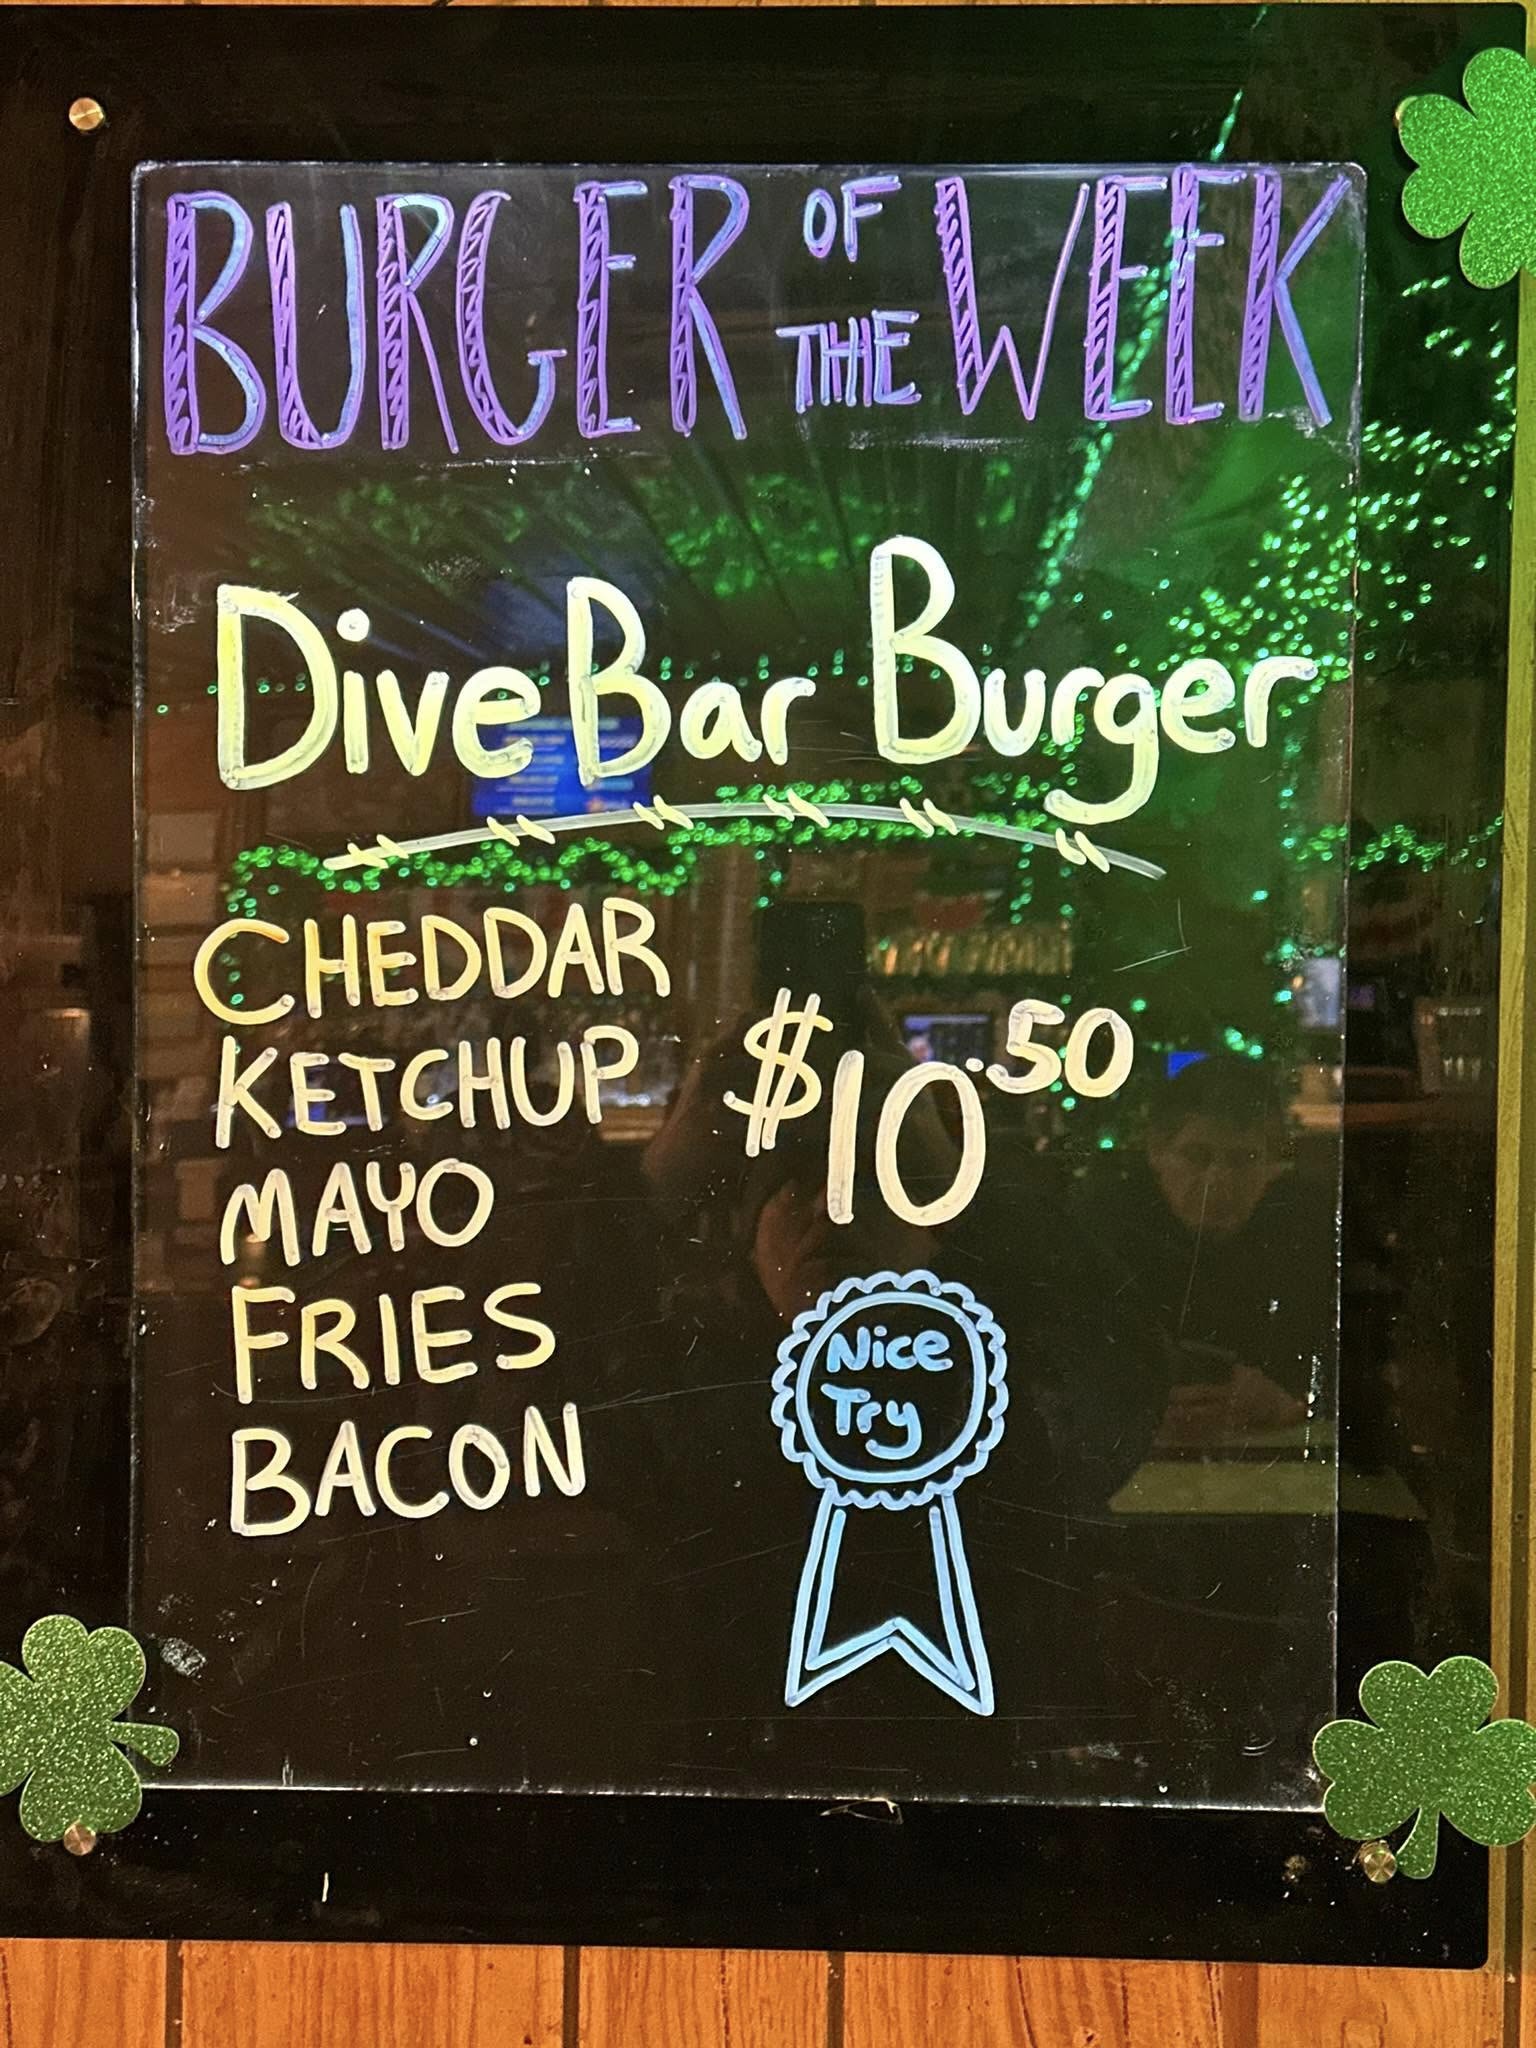 BURGER OF THE WEEK
Dive Bar Burger
CHEDDAR
KETCHUP
MAYO
FRIES
BACON
$10.50
Nice
Try